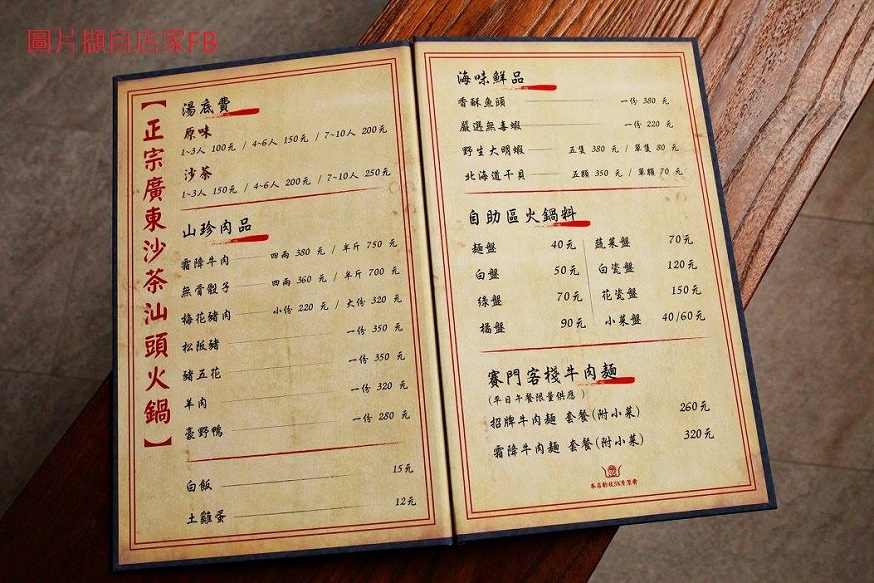 圖片擷自店家FB
【正宗廣東沙茶汕頭火鍋】
湯底費
原味
1~3人 100元 / 4~6人 150元 / 7~10人 200元
沙茶
1~3人 150元 / 4~6人 200元 / 7~10人 250元
山珍肉品
霜降牛肉 四兩 380 元 / 半斤 750 元
無骨骰子 四兩 360 元 / 半斤 700 元
梅花豬肉 小份 220 元 / 大份 320 元
松阪豬 一份 350 元
豬五花 一份 350 元
羊肉 一份 320 元
豪野鴨 一份 280 元
白飯 15元
土雞蛋 12元
海味鮮品
香酥魚頭 一份 380 元
嚴選無毒蝦 一份 220 元
野生大明蝦 五隻 380 元 / 單隻 80 元
北海道干貝 五顆 350 元 / 單顆 70 元
自助區火鍋料
麵盤 40元 蔬菜盤 70元
白盤 50元 白瓷盤 120元
綠盤 70元 花瓷盤 150元
橘盤 90元 小菜盤 40/60元
賽門客棧牛肉麵
(平日午餐限量供應)
招牌牛肉麵 套餐(附小菜) 260元
霜降牛肉麵 套餐(附小菜) 320元
本店酌收5%清潔費